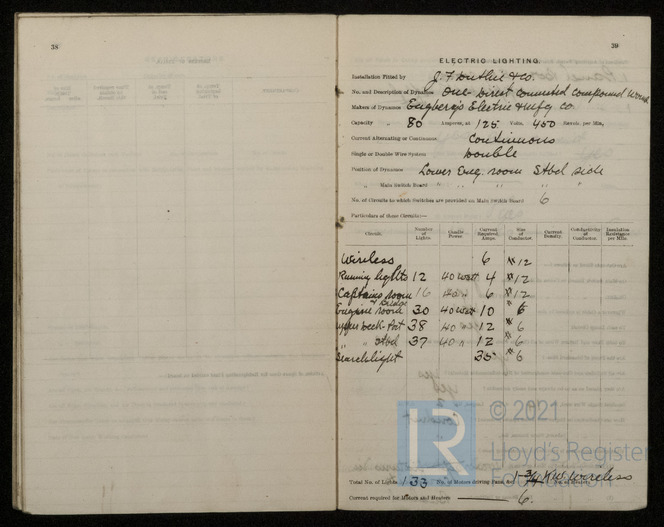 38
39
ELECTRIC LIGHTING.
Installation Fitted by J. F. Duthie & Co.
No. and Description of Dynamos One Direct Connected Compound Wound
Makers of Dynamos Engberg's Electric & Mfg Co
Capacity " 80 Amperes, at 125 Volts, 450 Revols. per Min.
Current Alternating or Continuous Continuous
Single or Double Wire System Double
Position of Dynamos Lower Eng. room Stbd side
" Main Switch Board " " " " "
No. of Circuits to which Switches are provided on Main Switch Board 6
Particulars of these Circuits:—
Circuit. Number of Lights. Candle Power. Current Required. Amps. Size of Conductor. Current Density. Conductivity of Conductor. Insulation Resistance per Mile.
Wireless 6 # 12
Running lights 12 40 watt 4 # 12
Captains room & Bridge 16 40 " 6 # 12
Engine room 30 40 watt 10 # 6
upper deck Port 38 40 " 12 # 6
" " Stbd 37 40 " 12 # 6
Searchlight 35 # 6
© 2021
LR
Lloyd's Register
Total No. of Lights 133 No. of Motors driving Fans, &c. 1-3/4 K.W. Wireless No. of Heaters
Current required for Motors and Heaters 6.